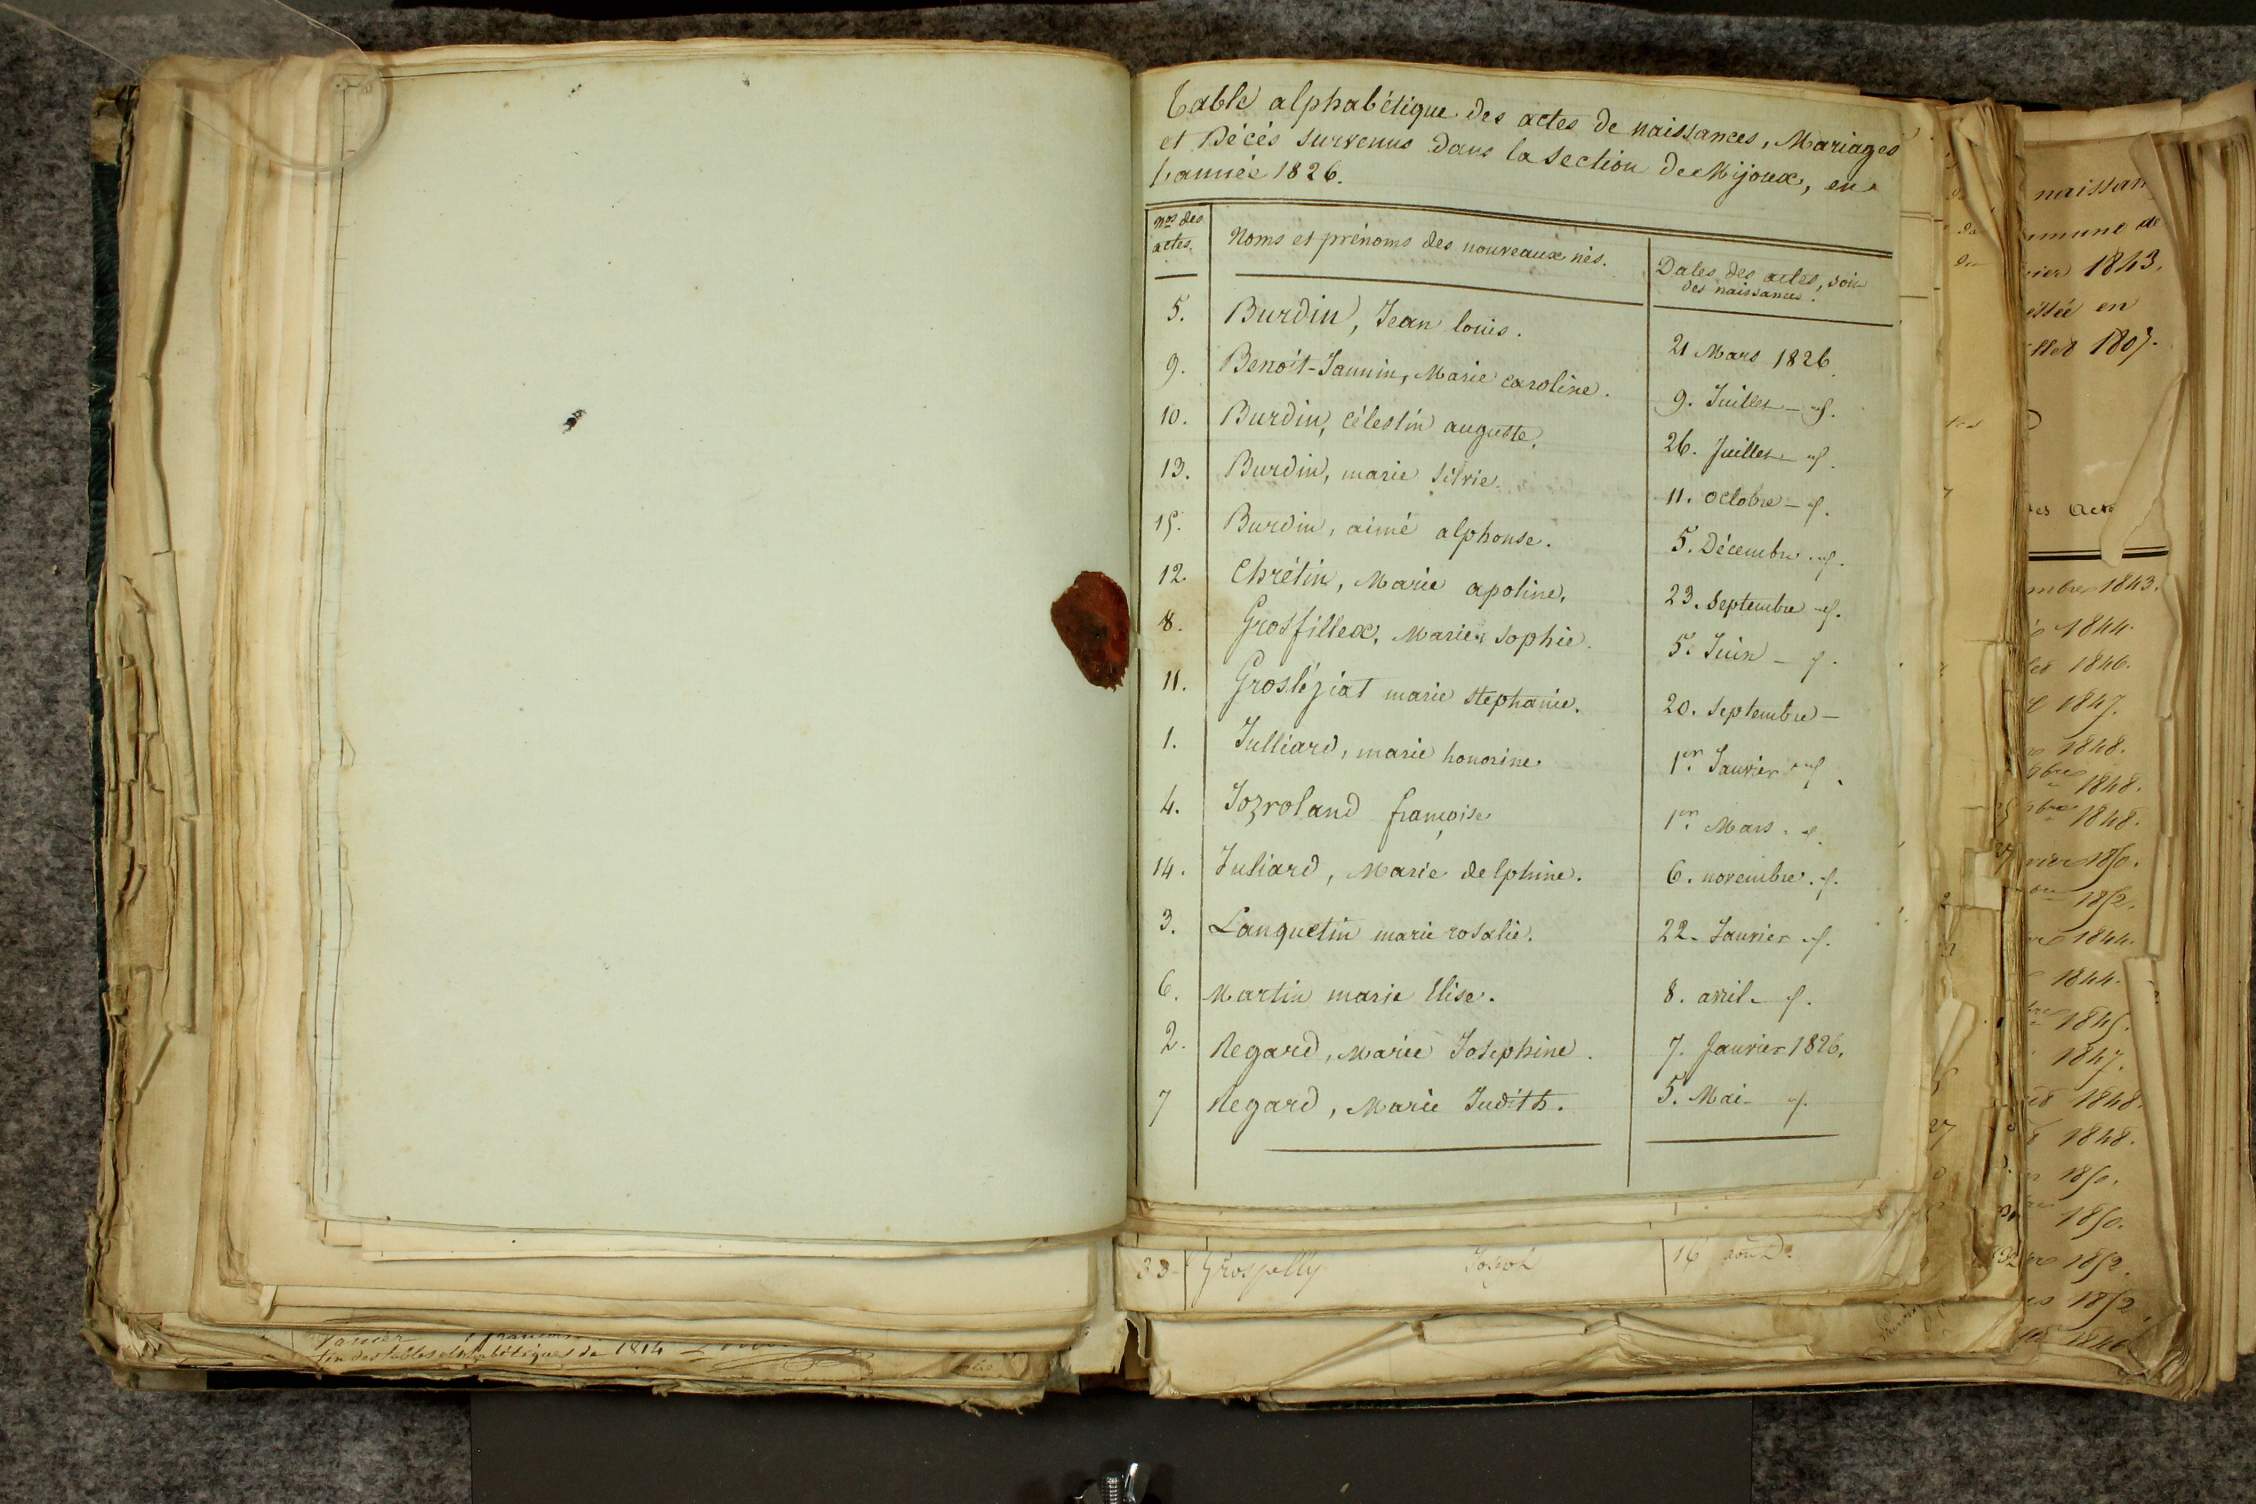 Table alphabétique des actes de naissances, Mariages
et Décès survenus dans la section de Mijoux, en
l'année 1826.
Nos des actes.
Noms et prénoms des nouveaux nés.
Dates des actes, soit des naissances.
5. Burdin, Jean louis. 21 Mars 1826
9. Benoit-Jannin, Marie caroline. 9. Juillet
10. Burdin, Célestin auguste. 26. Juillet
13. Burdin, marie silvie. 11. octobre
15. Burdin, aimé alphonse. 5. Décembre
12. Chrétin, Marie apoline. 23. Septembre
8. Grosfillex, Marie sophie. 5. Juin
11. Grosléziat marie stephanie. 20. septembre
1. Julliard, marie honorine. 1er. Janvier
4. Jozroland françoise 1er. Mars
14. Juliard, Marie delphine. 6. novembre
3. Lanquetin marie rosalie. 22. Janvier
6. Martin marie Elise. 8. avril
2. Regard, Marie Josephine. 7. Janvier 1826.
7 Regard, Marie Judith. 5. Mai
33 16
fin des tables alphabétiques de 1814
1843.
en
1807.
1843.
1844.
1846.
1847.
1848.
1848.
1848.
1850.
1852.
1844.
1844.
1845.
1847.
1848.
1848.
1850.
1850.
1852.
1852